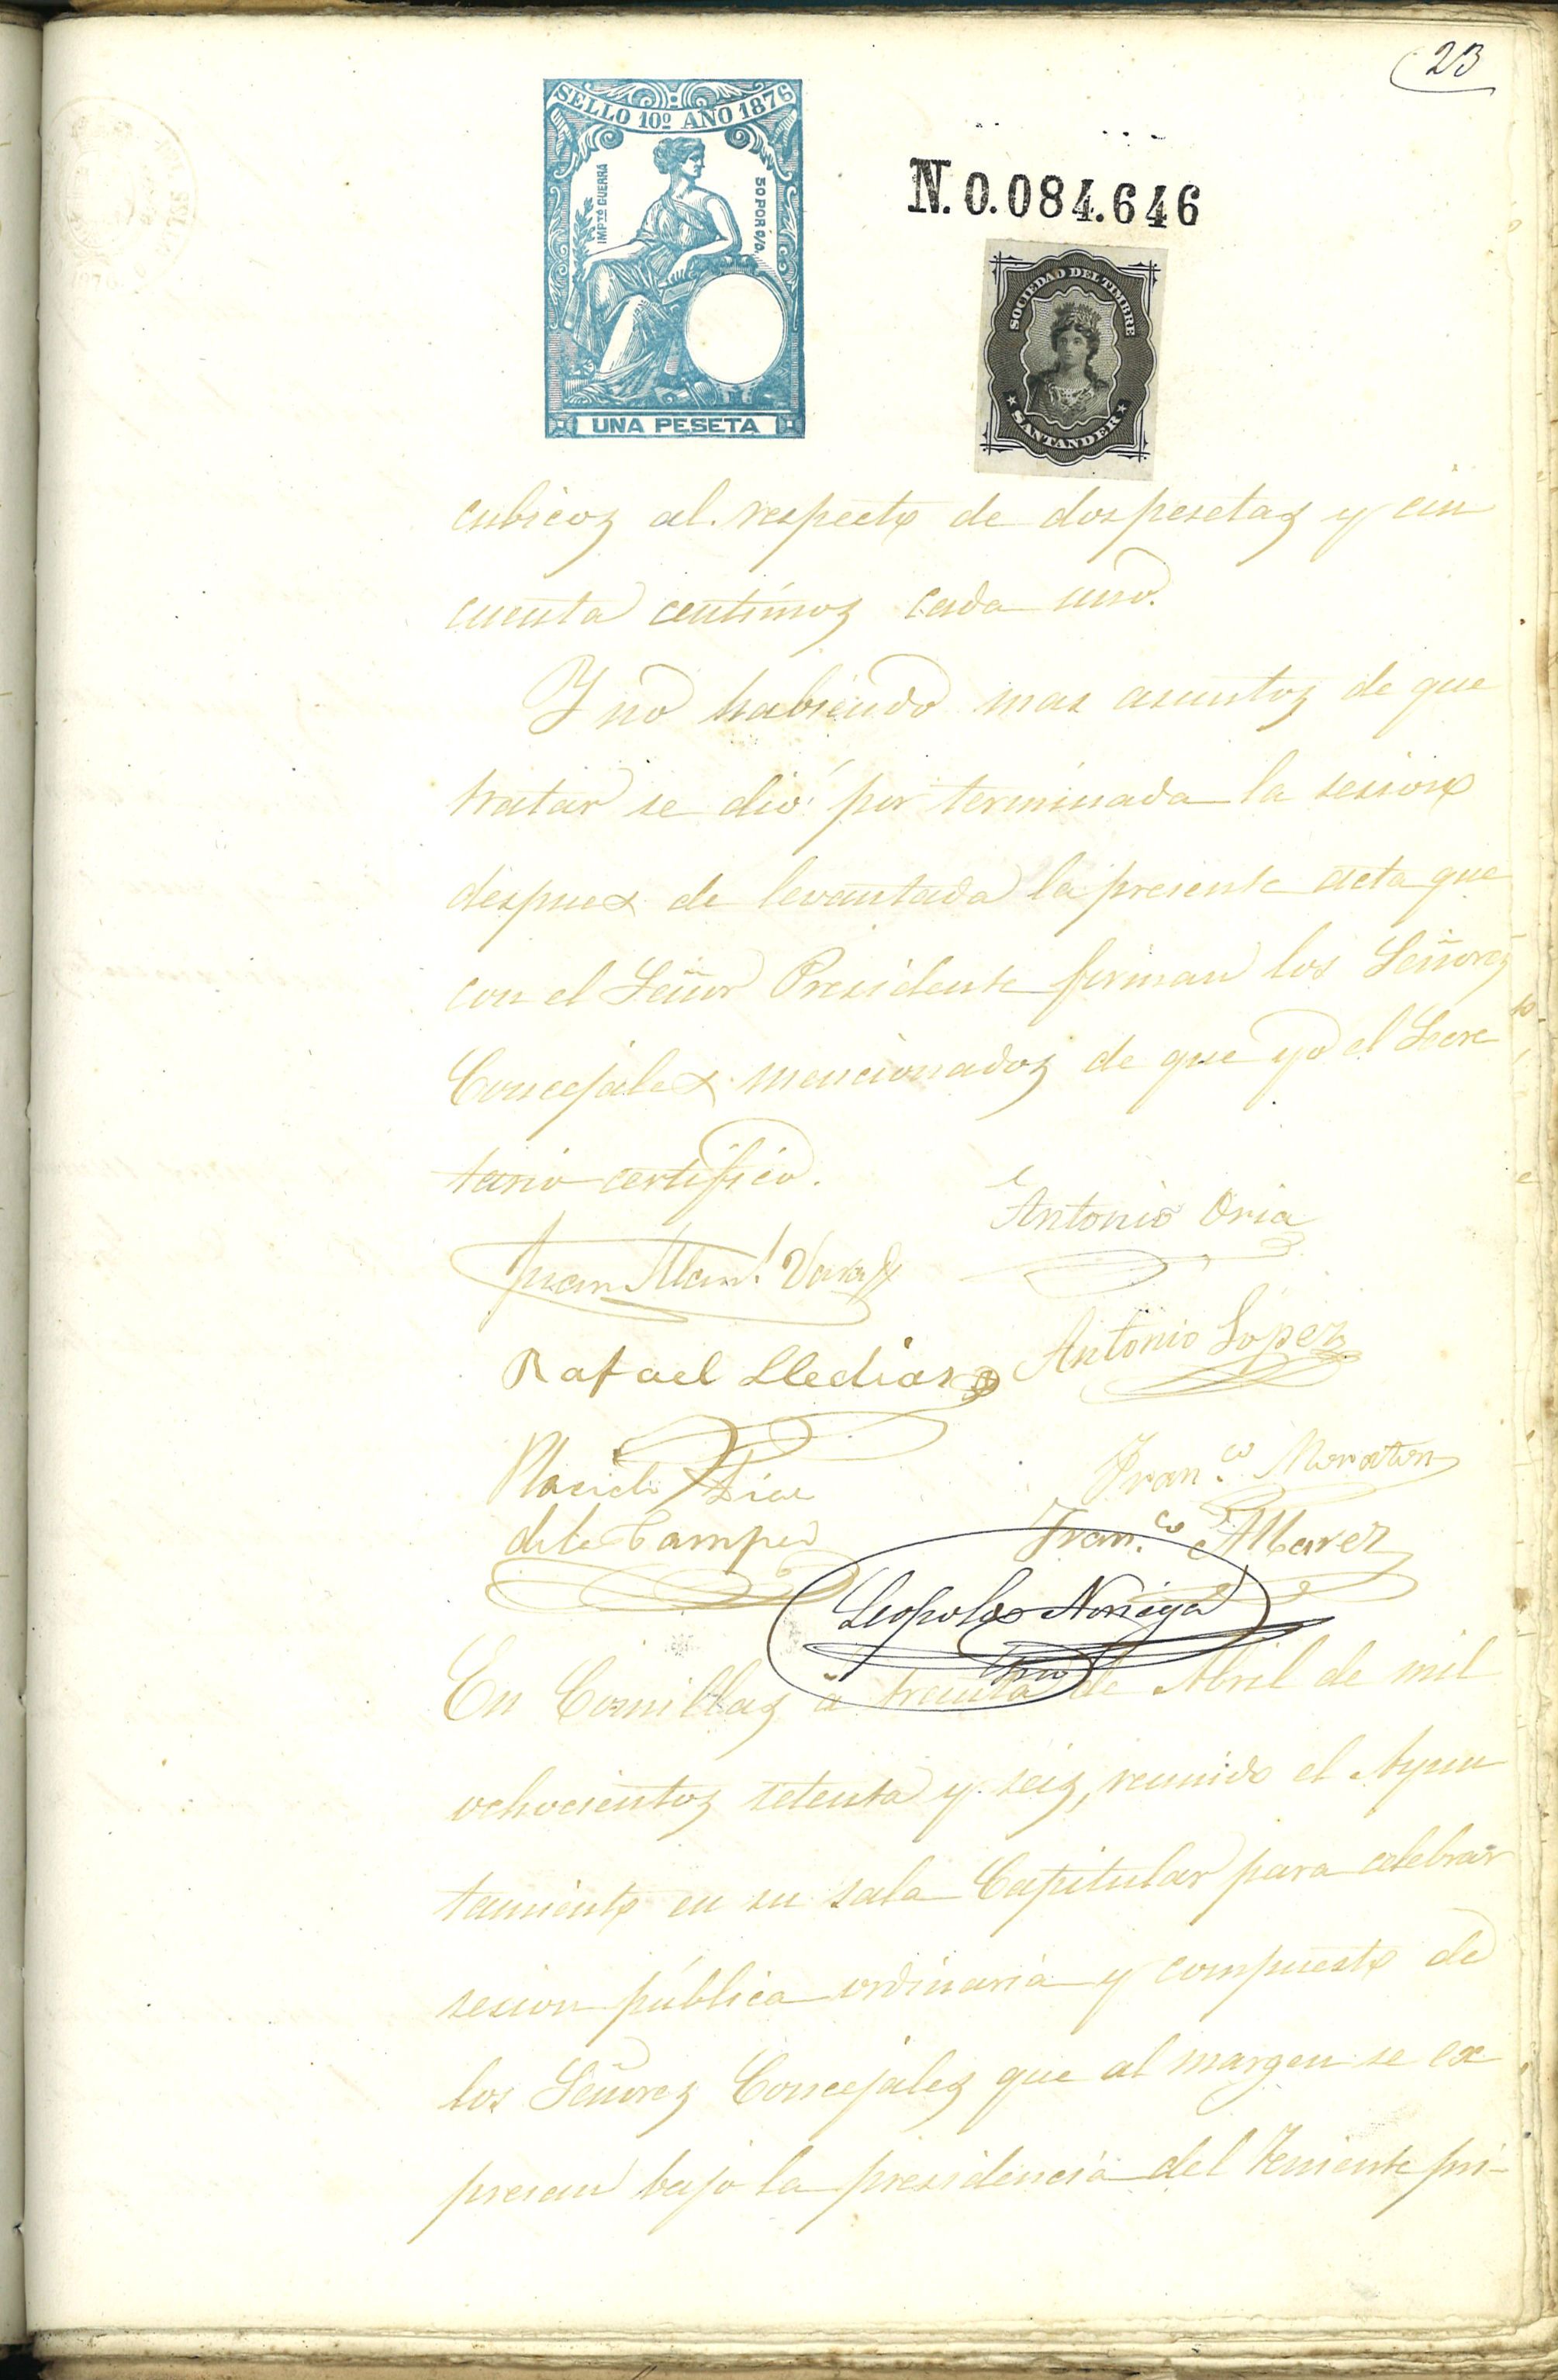 23
SELLO 10º AÑO 1876
IMPTO GUERRA
50 POR 0/0.
UNA PESETA
N. 0.084.646
SOCIEDAD DEL TIMBRE
SANTANDER
cubicos al respecto de dos pesetas y cin
cuenta centimos cada uno.
Y no habiendo mas asuntos de que
tratar se dió por terminada la sesion
despues de levantada la presente acta que
con el Señor Presidente firman los Señores
Concejales mencionados de que yo el Secre
tario certifico.
Antonio Oria
Juan Man.l
Rafael Lledias
Antonio Lopez
Placido Diaz
de la Campa
Fran.co Moraton
Fran.co Alvarez
Leopoldo Noriega
Srio
En Comillas á treinta de Abril de mil
ochocientos setenta y seis, reunido el Ayun
tamiento en su sala Capitular para celebrar
sesion pública ordinaria y compuesto de
los Señores Concejales que al margen se ex
presan bajo la presidencia del Teniente pri-